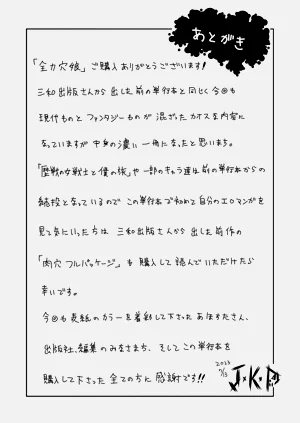 あとがき
「全力穴娘」ご購入ありがとうございます!
三和出版さんから出した前の単行本と同じく今回も
現代ものとファンタジーものが混ざったカオスな内容に
なっていますが中身の濃い一冊になったと思います。
「歴戦の女戦士と僕の旅」や一部のキャラ達は前の単行本からの
続投となっているのでこの単行本で初めて自分のエロマンガを
見て気にいった方は三和出版さんから出した前作の
「肉穴フルパッケージ」も購入して読んでいただけたら
幸いです。
今回も表紙のカラーを着彩して下さったあほすたさん、
出版社、編集のみなさま、そしてこの単行本を
購入して下さった全ての方に感謝です!!
J×K×P